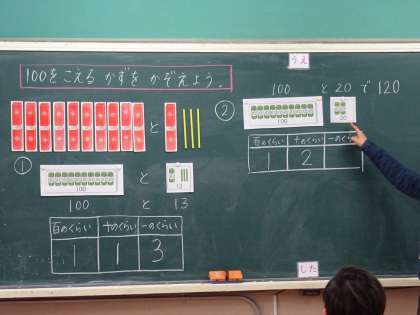 うえ
100をこえる かずを かぞえよう。
と
①
100
と
13
100 と 13
百のくらい 十のくらい 一のくらい
1 1 3
② 100 と 20 で 120
100
20
百のくらい 十のくらい 一のくらい
1 2
した